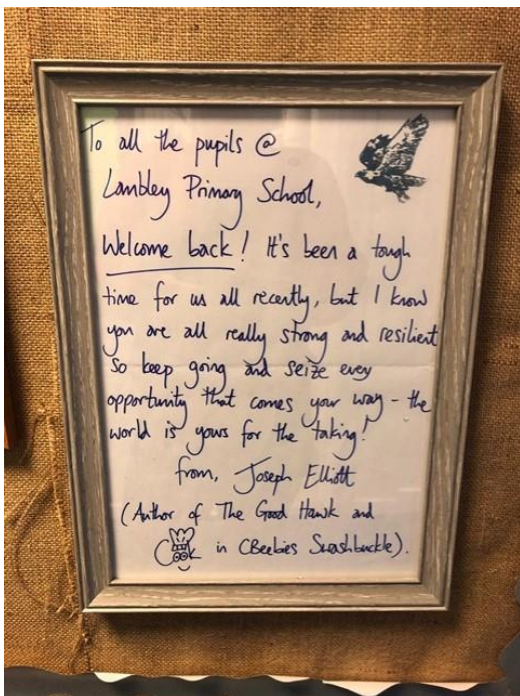 To all the pupils @
Lambley Primary School,
Welcome back! It's been a tough
time for us all recently, but I know
you are all really strong and resilient
so keep going and seize every
opportunity that comes your way - the
world is yours for the taking!
from, Joseph Elliott
(Author of The Good Hawk and
Cook in CBeebies Swashbuckle).